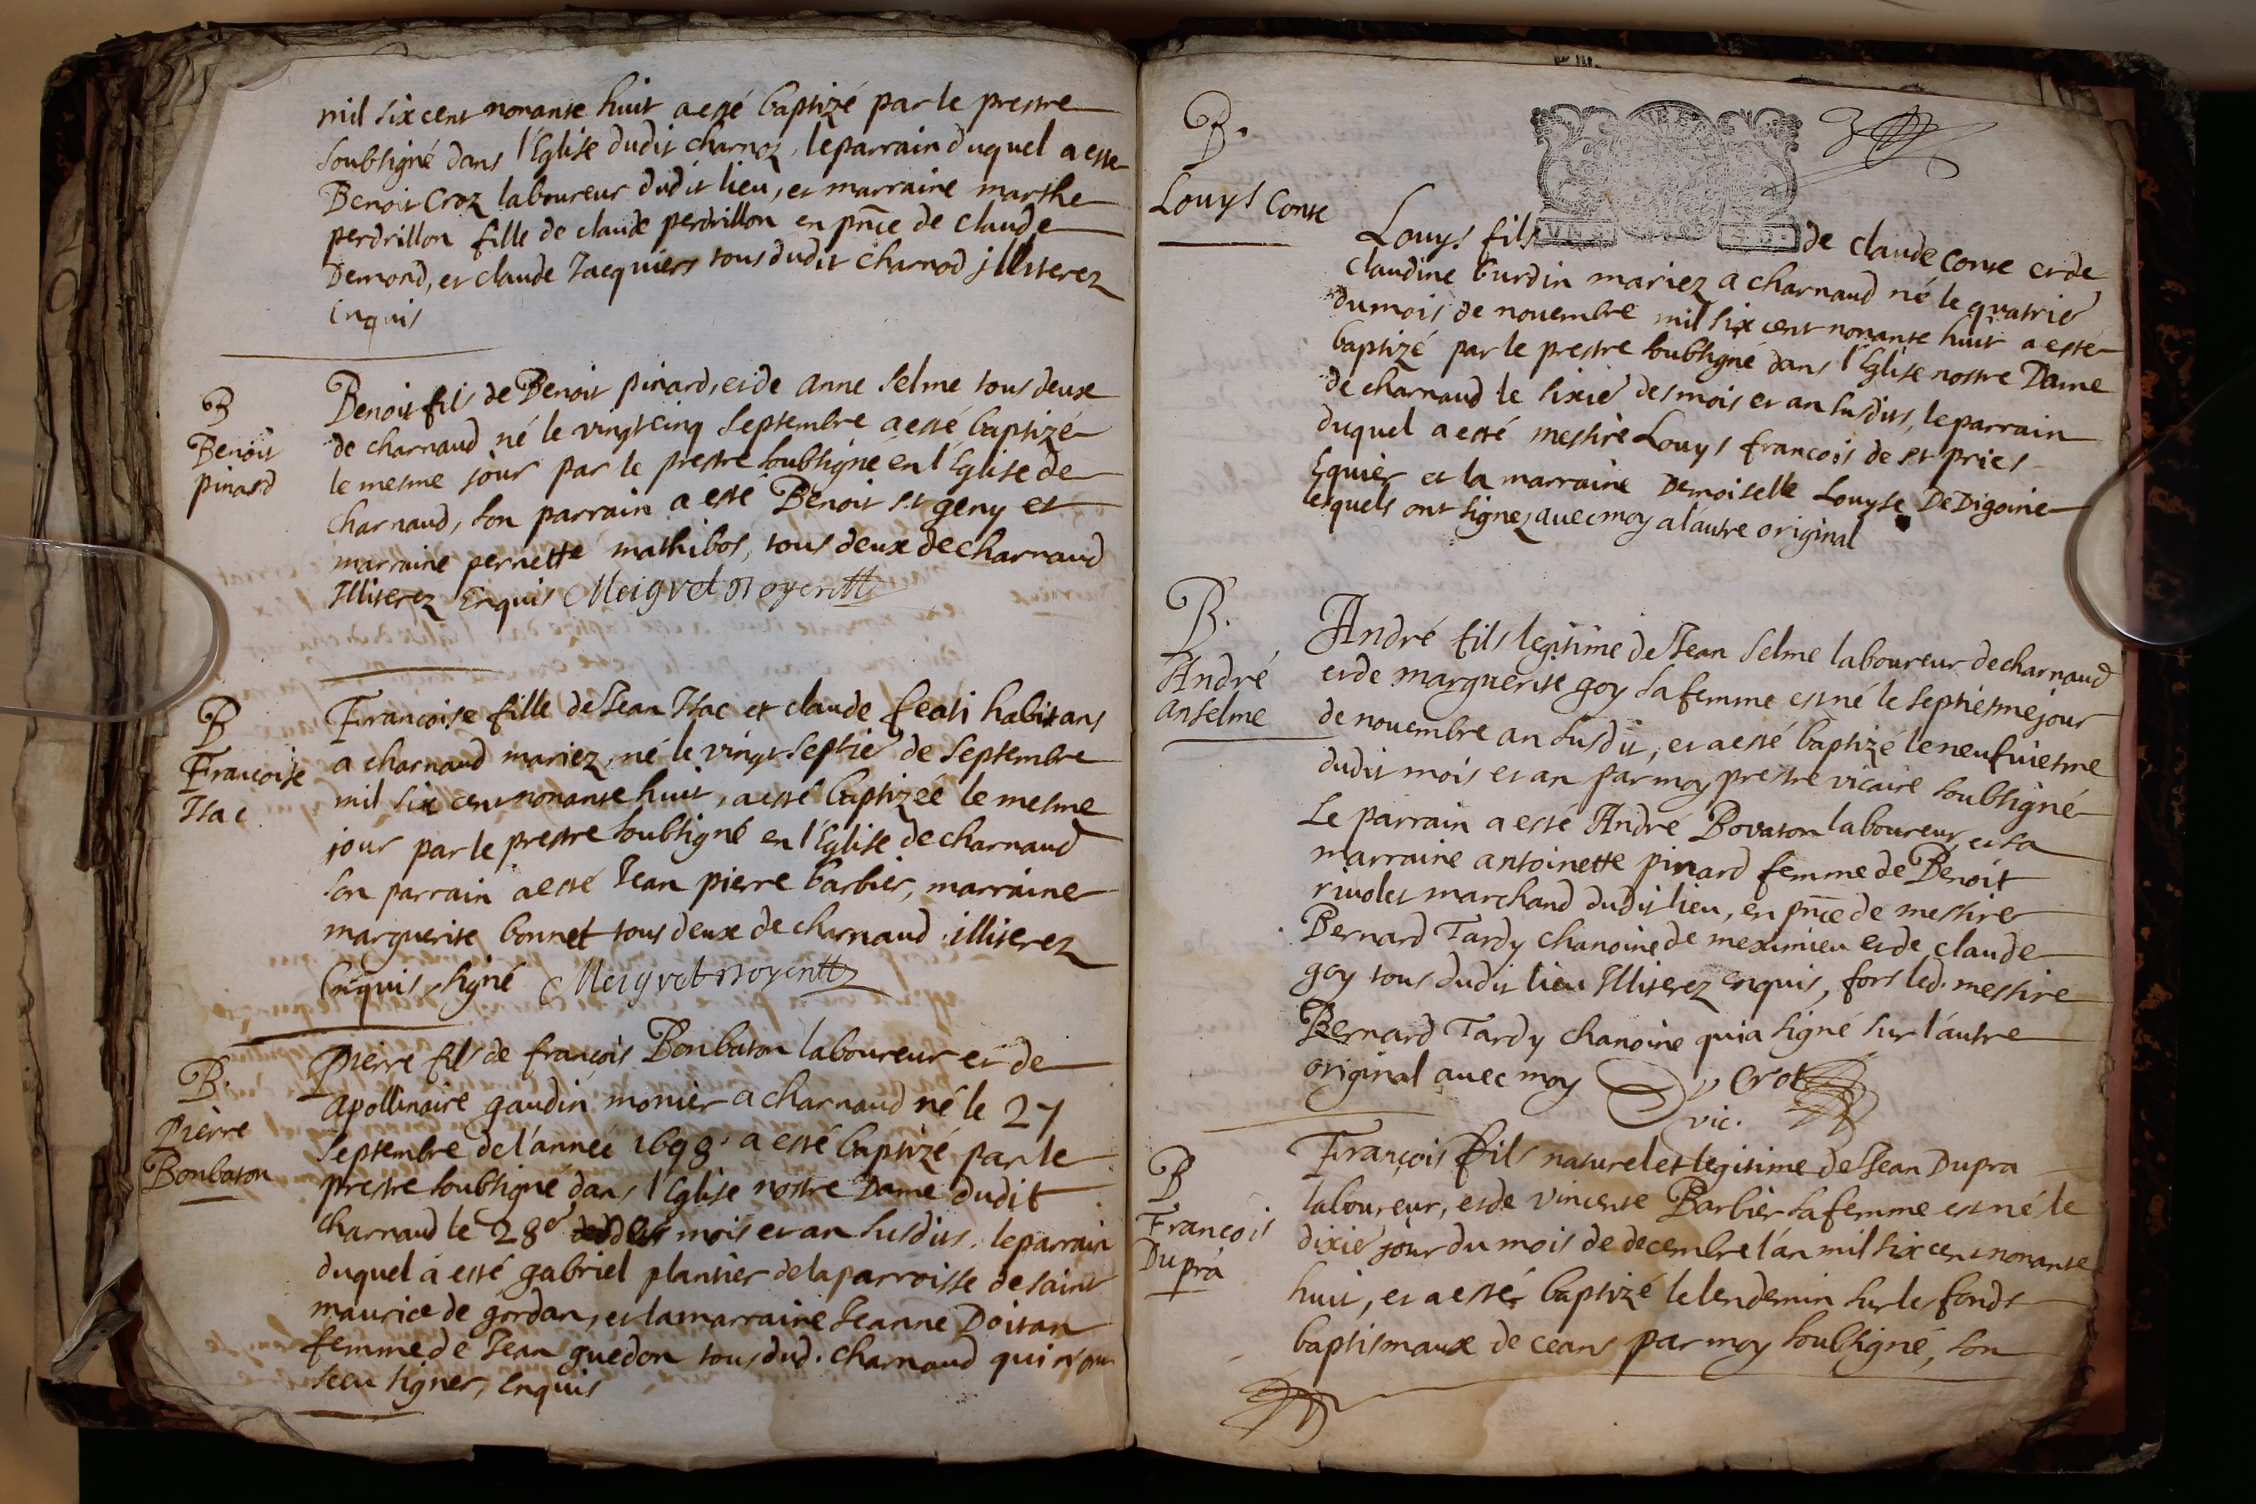 mil six cent nonante huit a esté baptizé par le prestre
soubsigné dans l'Eglise dudit charnoz, le parrain duquel a esté
Benoit Croz laboureur dudit lieu, et marraine marthe
perdrillon fille de claude perdrillon en pnce de claude
Demond, et claude Jacquiers tous dudit charnod illiterez
Enquis
B
Benoit
pinard
Benoit fils de Benoit pinard, et de anne selme tous deux
de charnaud né le vingt cinq septembre a esté baptizé
le mesme jour par le prestre soubsigné en l'Eglise de
charnaud, son parrain a esté Benoit st geny et
marraine pernette mathibos, tous deux de charnaud
Illiterez Enquis Meigret
B
Francoise
Isac
Francoise fille de Jean Isac et claude feati habitans
a charnaud mariez, né le vingt septie de septembre
mil six cent nonante huit, a esté baptizée le mesme
jour par le prestre soubsigné en l'Eglise de charnaud
son parrain a esté Jean pierre barbier, marraine
marguerite bonnet tous deux de charnaud illiterez
Enquis, signé Meigret
B.
Pierre
Bonbaton
pierre fils de françois Bonbaton laboureur et de
apollinaire gaudin monier a charnaud né le 27
septembre de l'année 1698. a esté baptizé par le
prestre soubsigné dans l'Eglise nostre Dame dudit
charnaud le 28e des mois et an susdits, le parrain
duquel a esté gabriel plantier de la parroisse de saint
maurice de gordan, et la marraine Jeanne Doitan
femme de Jean guedon tous dud. charnaud qui n'ont
sceu signer, Enquis
B.
Louys Conte
3
Louys fils de claude conte et de
claudine burdin mariez a charnaud né le quatrie
du mois de novembre mil six cent nonante huit a esté
baptizé par le prestre soubsigné dans l'Eglise nostre Dame
de charnaud le sixie des mois et an susdits, le parrain
duquel a esté messire Louys francois de st pries
Equier et la marraine Demoiselle Louyse De Digoine
lesquels ont signez avec moy a l'autre original
B.
André
anselme
André fils legitime de Jean selme laboureur de charnaud
et de marguerite goy sa femme est né le septiesme jour
de novembre an susdit, et a esté baptizé le neufuiesme
dudit mois et an par moy prestre vicaire soubsigné
Le parrain a esté André Bovaton laboureur, et sa
marraine antoinette pinard femme de Benoit
rivolet marchand dudit lieu, en pnce de messire
Bernard Tardy chanoine de meximieu et de claude
goy tous dudit lieu Illiterez enquis, fors led. messire
Bernard Tardy chanoine qui a signé sur l'autre
original avec moy Crot
vic.
B
François
Dupra
François fils naturel et legitime de Jean Dupra
laboureur, et de vincente Barbier sa femme est né le
dixie jour du mois de decembre l'an mil six cent nonante
huit, et a esté baptizé le lendemin sur les fonds
baptismaux de ceans par moy soubsigné, son